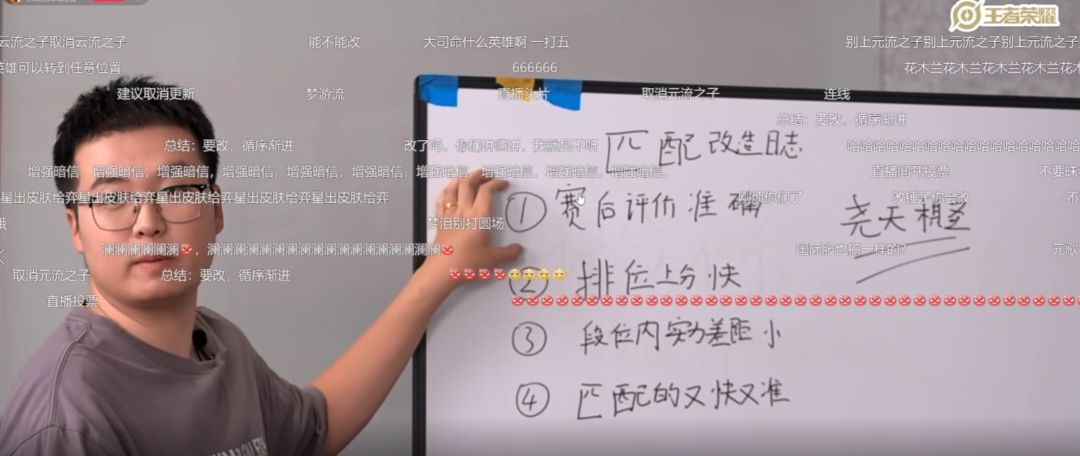 王者荣耀
云流之子取消云流之子
能不能改
大司命什么英雄啊 一打五
别上元流之子别上元流之子别上元流之子
英雄可以转到任意位置
666666
花木兰花木兰花木兰花木兰花木兰
建议取消更新
梦游流
直播头片
取消元流之子
连线
总结：要改，循序渐进
匹配改造日志
总结：要改，循序渐进
改了吗，你们讲师讲，我就是不听
哈哈哈哈哈哈哈哈哈哈哈哈哈哈哈哈哈哈
增强暗信，增强暗信，增强暗信，增强暗信，增强暗信，增强暗信，增强暗信，增强暗信，增强暗信，
直播间开投票
不要昧
星出皮肤给弈星出皮肤给弈星出皮肤给弈星出皮肤给弈星出皮肤给弈
① 赛后评价准确
尧天棋圣
梦泪别打圆场
澜澜澜澜澜澜澜澜，澜澜澜澜澜澜澜澜澜澜澜澜澜澜澜澜澜澜
国际服也搞一样的？
元歌
取消元流之子
总结：要改，循序渐进
② 排位上分快
直播投票
③ 段位内实力差距小
④ 匹配的又快又准